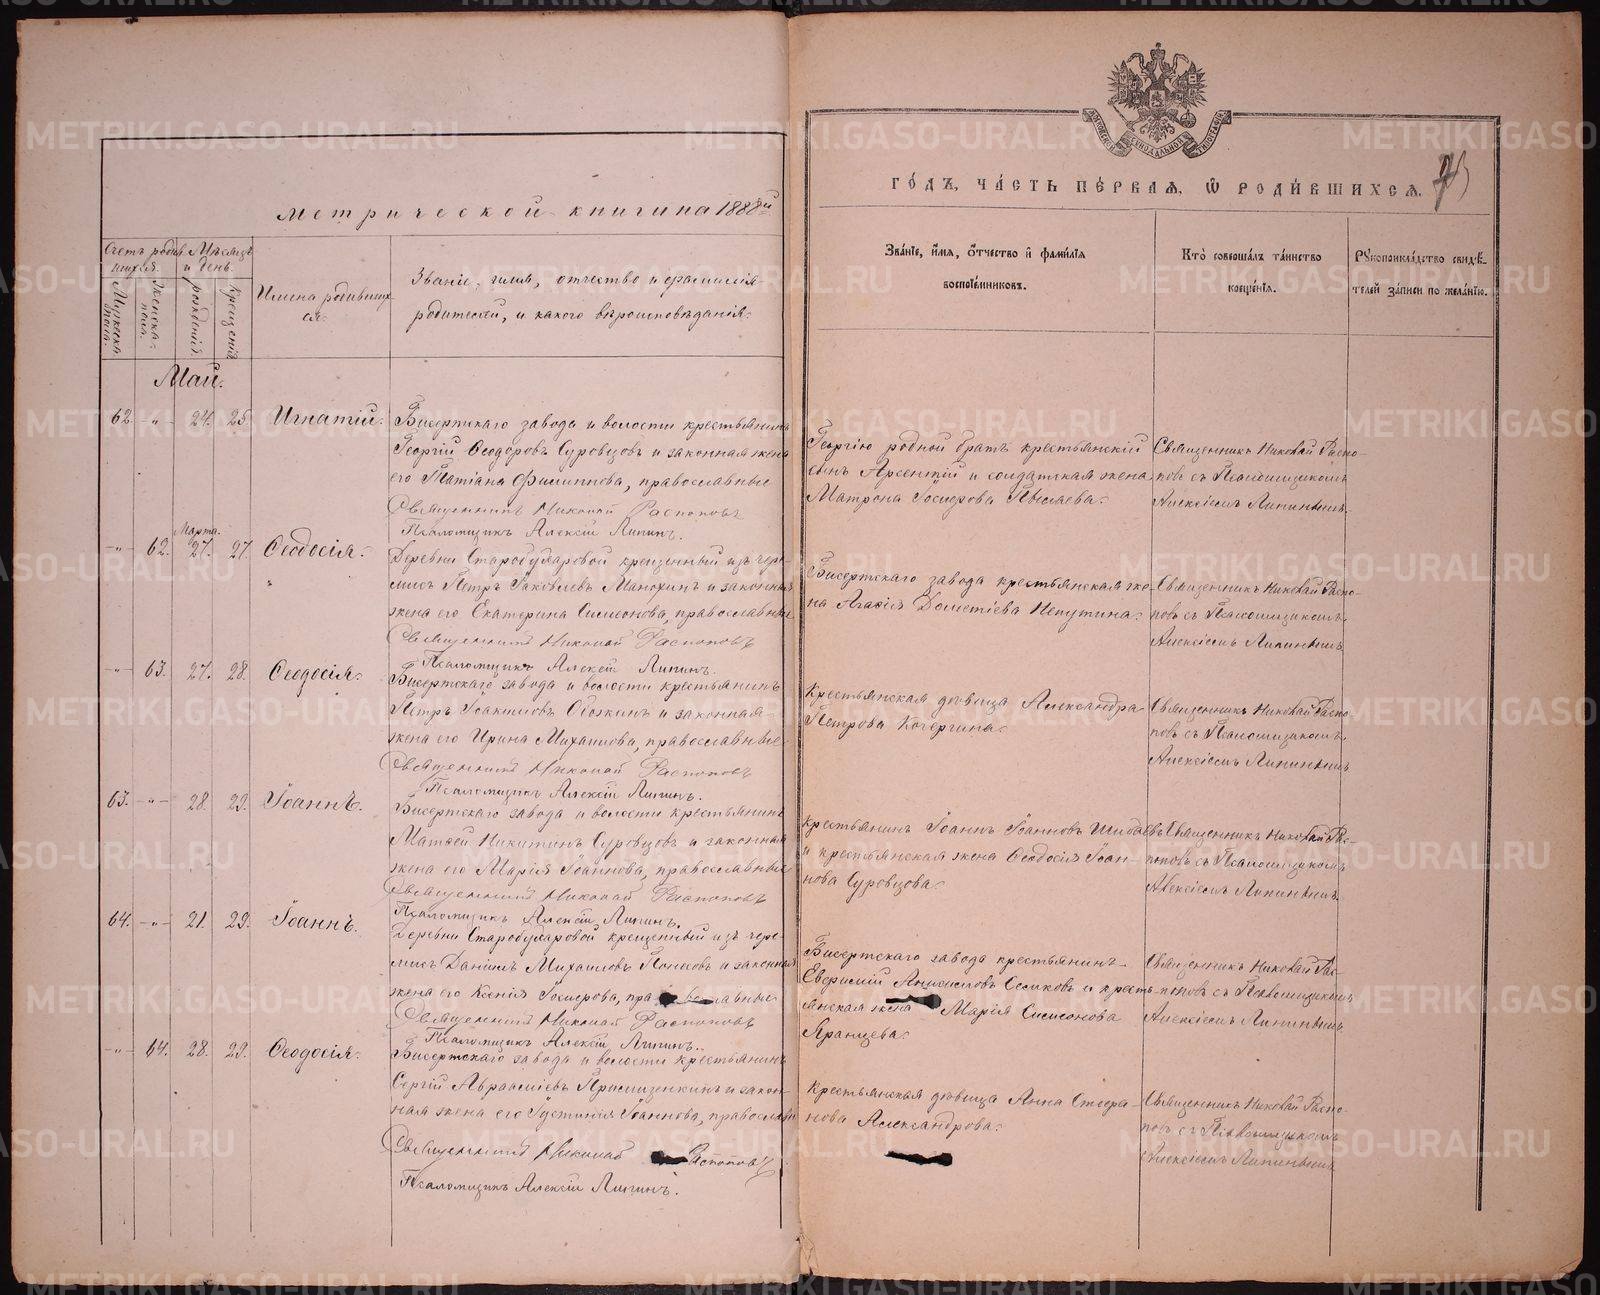 Метрической книги на 1888й
годъ, часть первая, ѡ родившихся.
Счетъ родив-
шихся.
Мужеска
пола.
Женска
пола.
Мѣсяцъ
и день.
рожденія
крещенія
Имена родивших
ся.
Званіе, имя, отчество и фамилія
родителей, и какого вѣроисповѣданія.
Званіе, имя, отчество и фамилія
воспріемниковъ.
Кто совершалъ таинство
крещенія.
Рукоприкладство свидѣ-
телей записи по желанію.
Май.
62. -„- 24. 25. Игнатій.
Бисертскаго завода и волости крестьянинъ
Георгій Ѳеодоровъ Суровцовъ и законная жена
его Татіана Филиппова, православные
Священникъ Николай Распоповъ
Псаломщикъ Алексій Липинъ.
Георгію родной братъ крестьянскій
сынъ Арсентій и солдатская жена
Матрона
Священникъ Николай Распо-
повъ съ Псаломщикомъ
Алексіемъ Липинымъ.
-„- 62. Марта 27. 27. Ѳеодосія.
Деревни Старобухаровой крещенный изъ чере-
мисъ Петръ Іаковлевъ и законная
жена его Екатерина Симеонова, православные
Священникъ Николай Распоповъ
Псаломщикъ Алексій Липинъ.
Бисертскаго завода крестьянская же-
на Агафія Дометіева Непутина.
Священникъ Николай Распо-
повъ съ Псаломщикомъ
Алексіемъ Липинымъ
-„- 63. 27. 28. Ѳеодосія.
Бисертскаго завода и волости крестьянинъ
Петръ Іоакимовъ и законная
жена его Ирина Михаилова, православные
Священникъ Николай Распоповъ
Псаломщикъ Алексій Липинъ.
Крестьянская дѣвица Александра
Петрова Кочергина.
Священникъ Николай Распо-
повъ съ Псаломщикомъ
Алексіемъ Липинымъ
63. -„- 28. 29. Іоаннъ.
Бисертскаго завода и волости крестьянинъ
Матвей Никитинъ Суровцовъ и законная
жена его Марія Іоаннова, православные
Священникъ Николай Распоповъ
Псаломщикъ Алексій Липинъ.
Крестьянинъ Іоаннъ Іоанновъ
и крестьянская жена Ѳеодосія Іоан-
нова Суровцова.
Священникъ Николай Рас-
поповъ съ Псаломщикомъ
Алексіемъ Липинымъ.
64. -„- 21. 29. Іоаннъ.
Деревни Старобухаровой крещенный изъ чере-
мисъ Даніилъ Михаиловъ и законная
жена его Ксенія православные
Священникъ Николай Распоповъ
Псаломщикъ Алексій Липинъ.
Бисертскаго завода крестьянинъ
Евфимій и кресть-
янская жена Марія Симеонова
Яранцева.
Священникъ Николай Рас-
поповъ съ Псаломщикомъ
Алексіемъ Липинымъ
-„- 64. 28. 29. Ѳеодосія.
Бисертскаго завода и волости крестьянинъ
Сергій Аврааміевъ и закон-
ная жена его Іустинія Іоаннова, православн
Священникъ Николай Распоповъ
Псаломщикъ Алексій Липинъ.
Крестьянская дѣвица Анна Стефа-
нова Александрова.
Священникъ Николай Распо-
повъ съ Псаломщикомъ
Алексіемъ Липинымъ